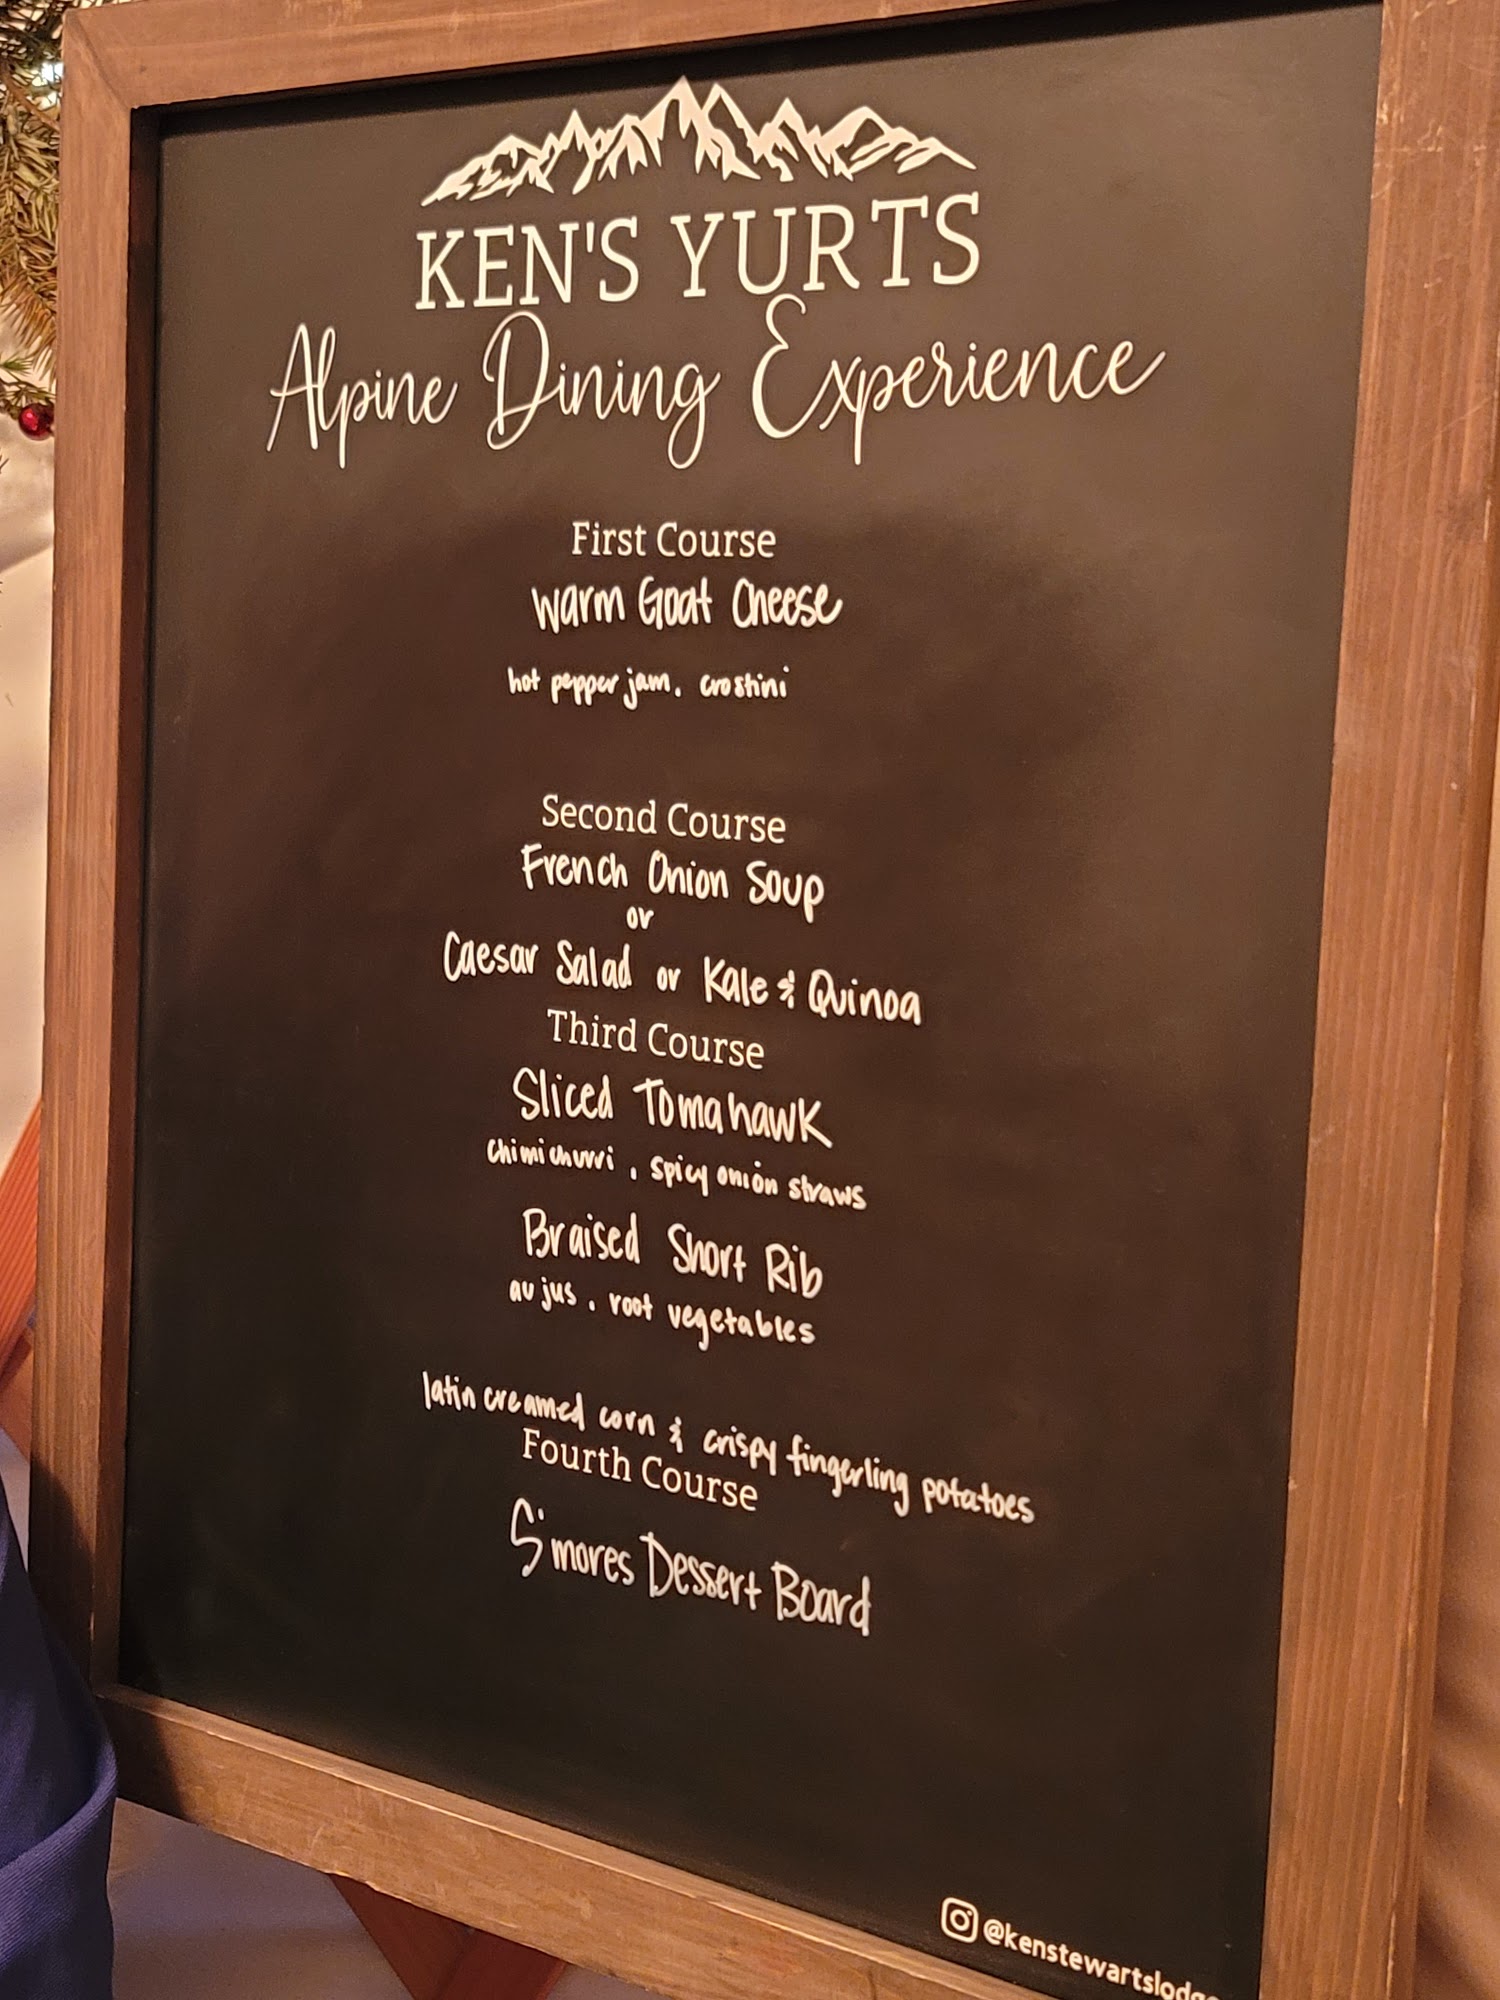 KEN'S YURTS
Alpine Dining Experience
First Course
Warm Goat Cheese
hot pepper jam, crostini
Second Course
French Onion Soup
or
Caesar Salad or Kale & Quinoa
Third Course
Sliced Tomahawk
chimichurri, spicy onion straws
Braised Short Rib
au jus, root vegetables
latin creamed corn & crispy fingerling potatoes
Fourth Course
S'mores Dessert Board
@kenstewartslodge